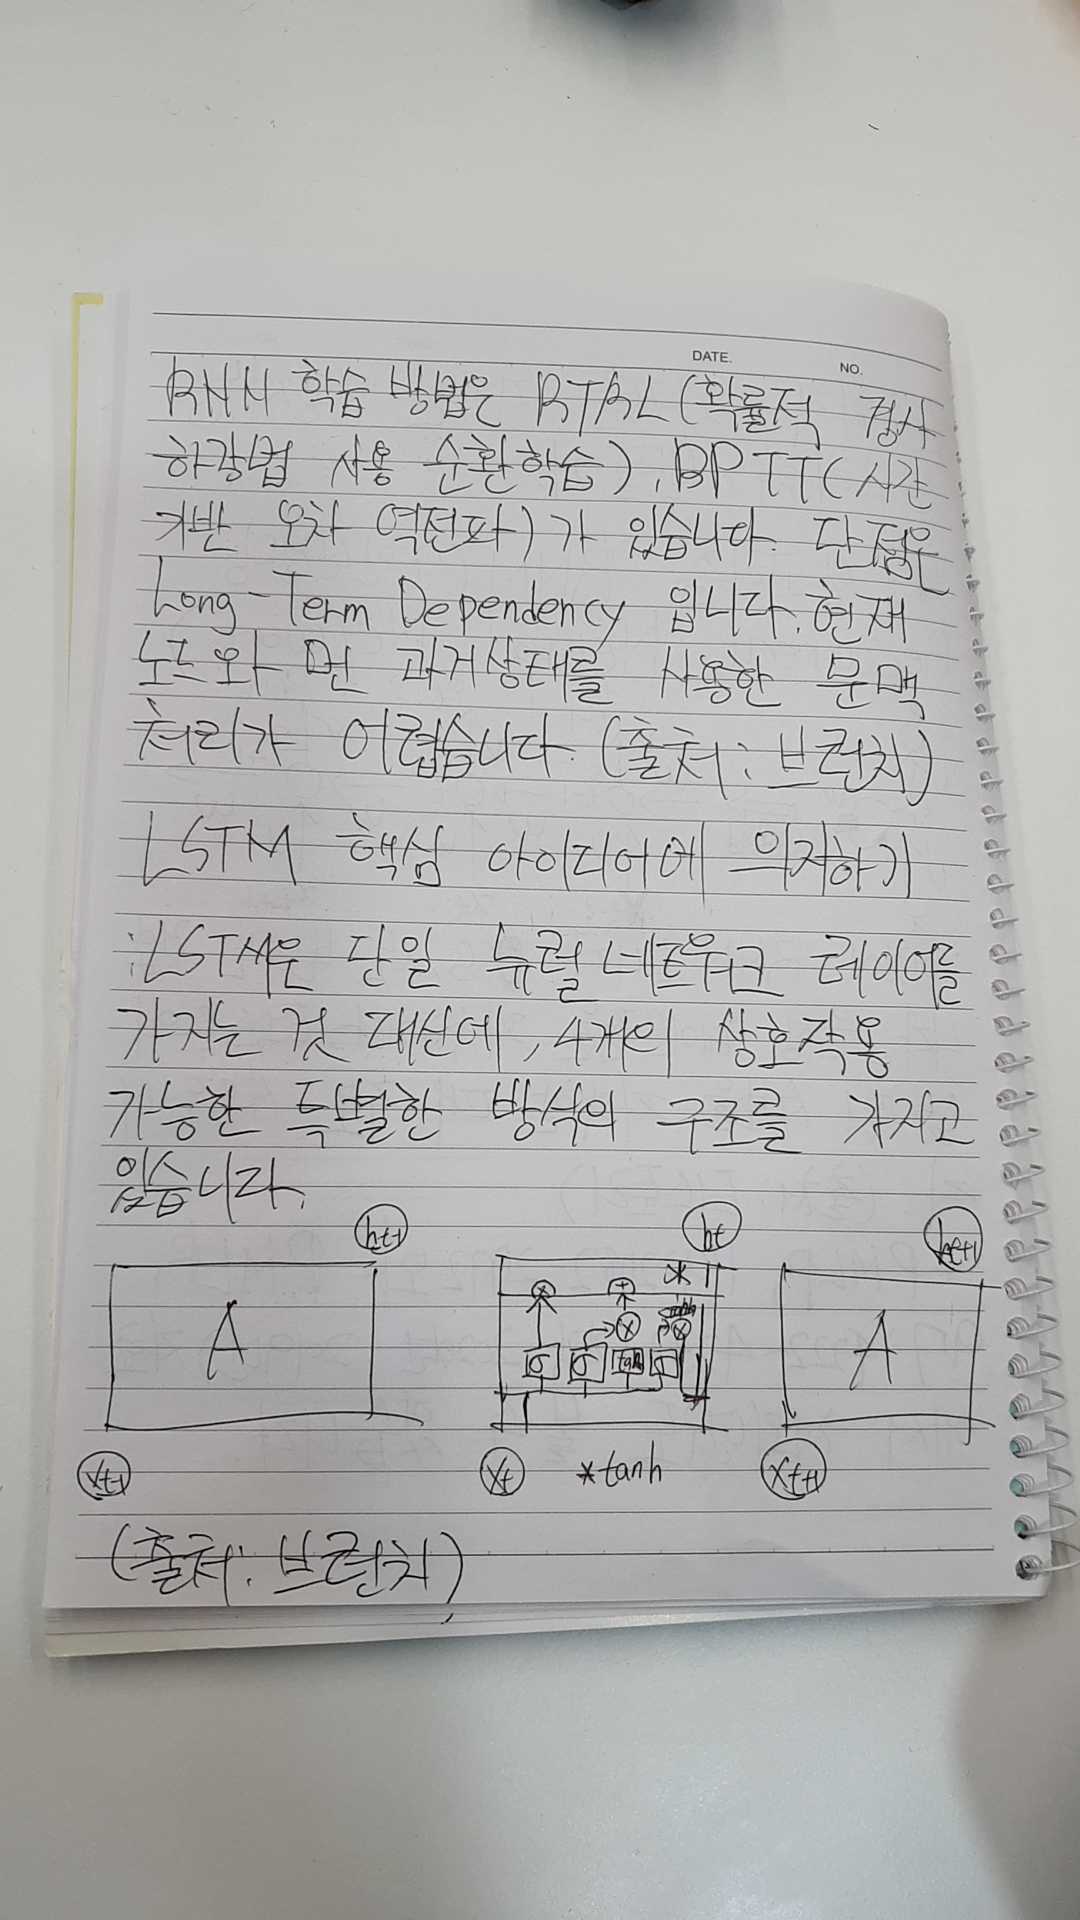 DATE.
NO.
RNN 학습 방법은 RTRL(확률적 경사
하강법 사용 순환학습), BPTT(시간
기반 오차 역전파)가 있습니다. 단점은
Long-Term Dependency 입니다. 현재
노드와 먼 과거상태를 사용한 문맥
처리가 어렵습니다. (출처: 브런치)
LSTM 핵심 아이디어에 의지하기
:LSTM은 단일 뉴럴 네트워크 레이어를
가지는 것 대신에, 4개의 상호작용
가능한 특별한 방식의 구조를 가지고
있습니다.
ht-1 ht ht+1
A
x + *
x x
σ σ tanh σ
A
xt-1 xt *tanh xt+1
(출처: 브런치)